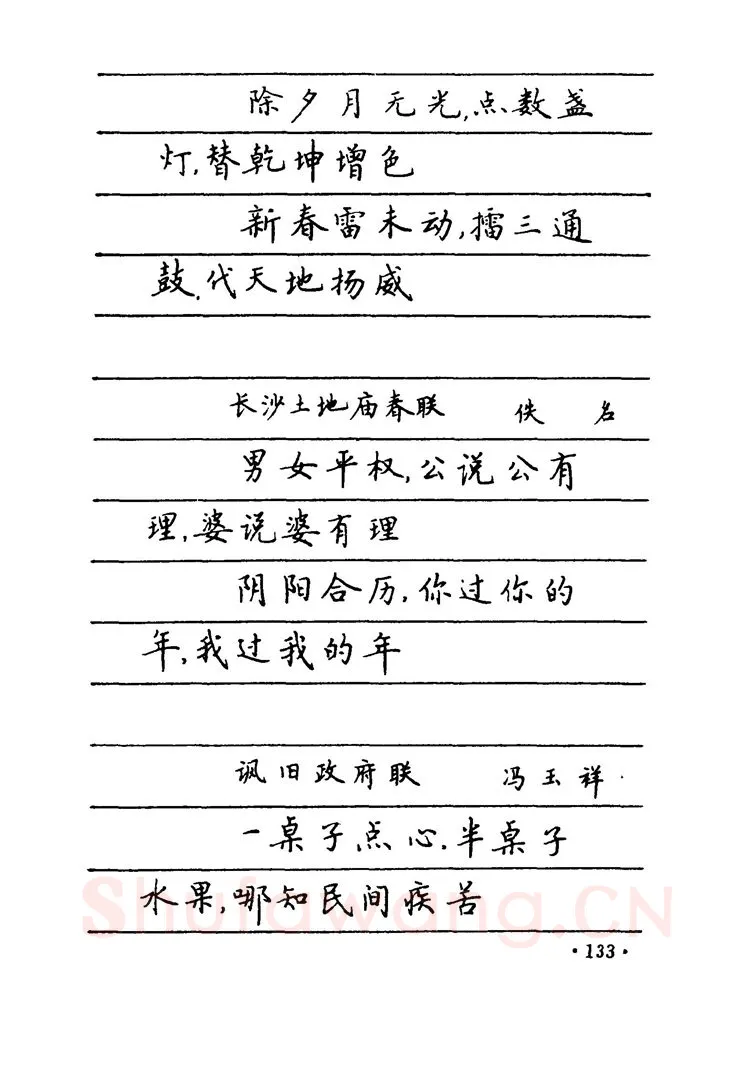 除夕月无光,点数盏
灯,替乾坤增色
新春雷未动,擂三通
鼓,代天地扬威
长沙土地庙春联 佚名
男女平权,公说公有
理,婆说婆有理
阴阳合历,你过你的
年,我过我的年
讽旧政府联 冯玉祥
一桌子点心,半桌子
水果,哪知民间疾苦
Shufawang.CN
·133·